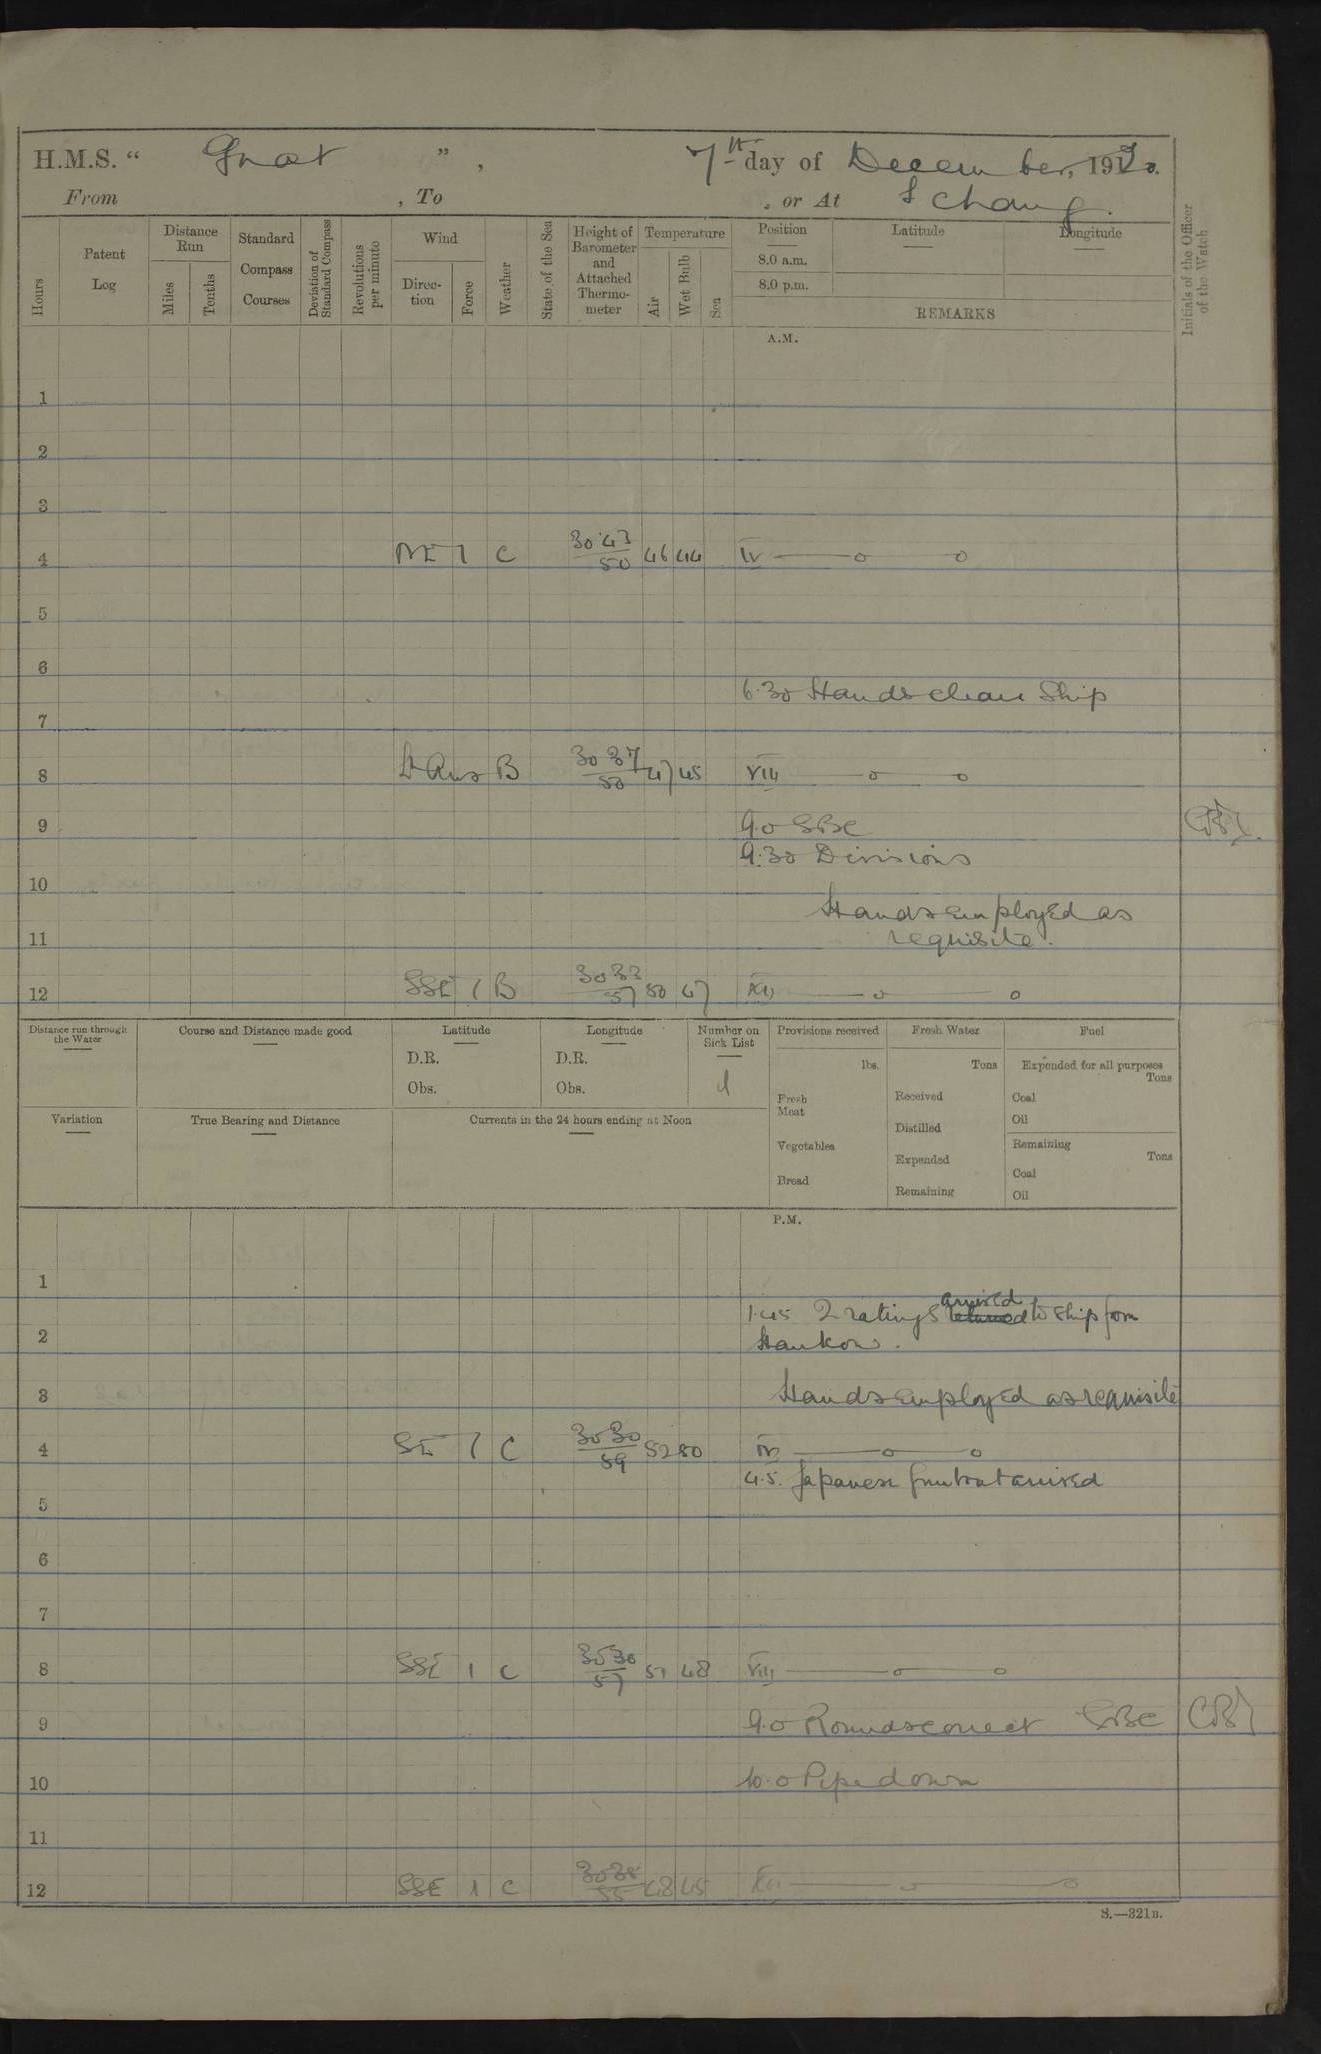 H.M.S. “ Gnat ”, 7th day of December, 1920.
From , To , or At Ichang.
Hours
Patent Log
Distance Run
Miles
Tenths
Standard Compass Courses
Deviation of Standard Compass
Revolutions per minute
Wind
Direction
Force
Weather
State of the Sea
Height of Barometer and Attached Thermometer
Temperature
Air
Wet Bulb
Sea
Position
8.0 a.m.
8.0 p.m.
Latitude
Longitude
REMARKS
Initials of the Officer of the Watch
A.M.
1
2
3
4 NE 1 C 30.43/50 46 44 IV
5
6
6.30 Hands clean Ship
7
8 Lt Airs B 30 37/50 47 45 VIII
9 9.0 SBC
9.30 Divisions
10
Hands employed as
11 requisite.
12 SSE 1 B 30 33/57 50 47 XII
Distance run through the Water
Course and Distance made good
Latitude
D.R.
Obs.
Longitude
D.R.
Obs.
Number on Sick List
1
Provisions received
lbs.
Fresh Meat
Vegetables
Bread
Fresh Water
Tons
Received
Distilled
Expended
Remaining
Fuel
Expended for all purposes
Tons
Coal
Oil
Remaining
Tons
Coal
Oil
Variation
True Bearing and Distance
Currents in the 24 hours ending at Noon
P.M.
1
1.45 2 ratings arrived to ship from
2 Hankow.
3 Hands employed as requisite
4 SE 1 C 30 30/59 52 50 IV
4.5. Japanese gunboat arrived
5
6
7
8 SSE 1 C 30 30/57 51 48 VIII
9 9.0 Rounds correct SBC
10 10.0 Pipe down
11
12 SSE 1 C 48 45 XII
S.—321B.